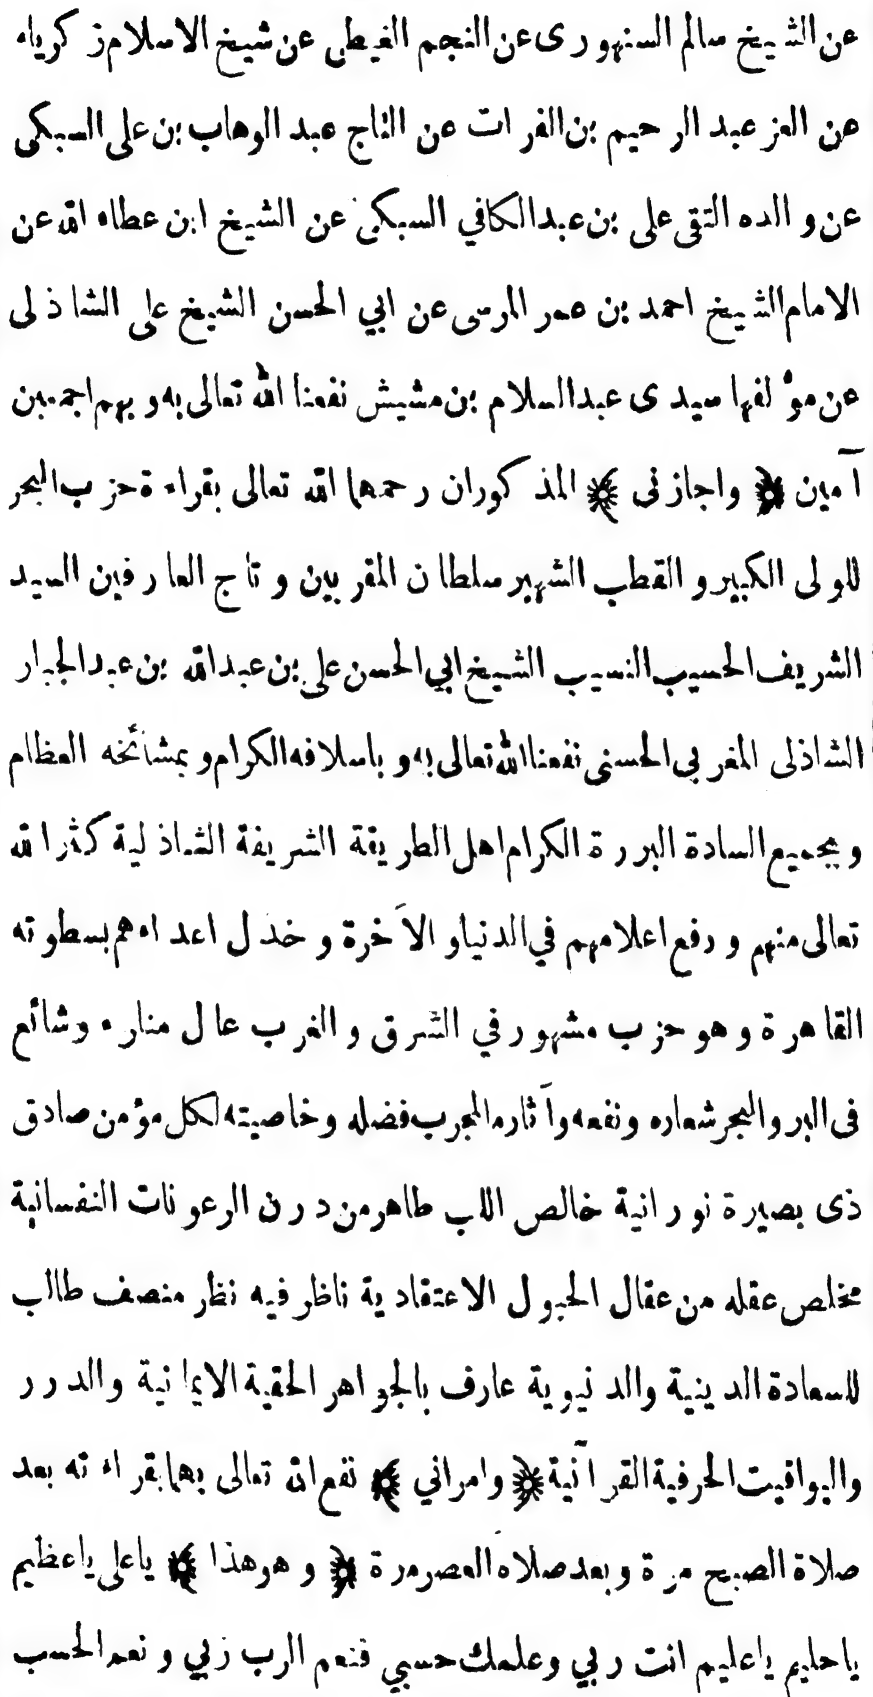 عن الشيخ سالم السنهوري عن النجم الغيطي عن شيخ الاسلام زكرياء
عن العز عبد الرحيم بن الفرات عن التاج عبد الوهاب بن علي السبكي
عن والده التقى على بن عبد الكافي السبكي عن الشيخ ابن عطاء الله عن
الامام الشيخ احمد بن عمر المرسى عن ابي الحسن الشيخ على الشاذلى
عن مؤلفها سيدى عبد السلام بن مشيش نفعنا الله تعالى به وبهم اجمعين
آمين ﴿ واجازنى ﴾ المذكوران رحمهما الله تعالى بقراءة حزب البحر
للولى الكبير والقطب الشهير سلطان المقربين وتاج العارفين السيد
الشريف الحسيب النسيب الشيخ ابي الحسن على بن عبد الله بن عبد الجبار
الشاذلى المغربى الحسنى نفعنا الله تعالى به وباسلافه الكرام وبمشائخه العظام
وبجميع السادة البررة الكرام اهل الطريقة الشريفة الشاذلية كثر الله
تعالى منهم ورفع اعلامهم في الدنيا والآخرة وخذل اعداءهم بسطوته
القاهرة وهو حزب مشهور في الشرق والغرب عال مناره وشائع
فى البر والبحر شعاره ونفعه وآثاره المجرب فضله وخاصيته لكل مؤمن صادق
ذى بصيرة نورانية خالص اللب طاهر من درن الرعونات النفسانية
مخلص عقله من عقال الحبول الاعتقادية ناظر فيه نظر منصف طالب
للسعادة الدينية والدنيوية عارف بالجواهر الحقية الايمانية والدرر
واليواقيت الحرفية القرآنية ﴿ وامراني ﴾ نفع الله تعالى بهما بقراءته بعد
صلاة الصبح مرة وبعد صلاة العصر مرة ﴿ وهو هذا ﴾ ياعلى ياعظيم
ياحليم ياعليم انت ربي وعلمك حسبي فنعم الرب ربي ونعم الحسب